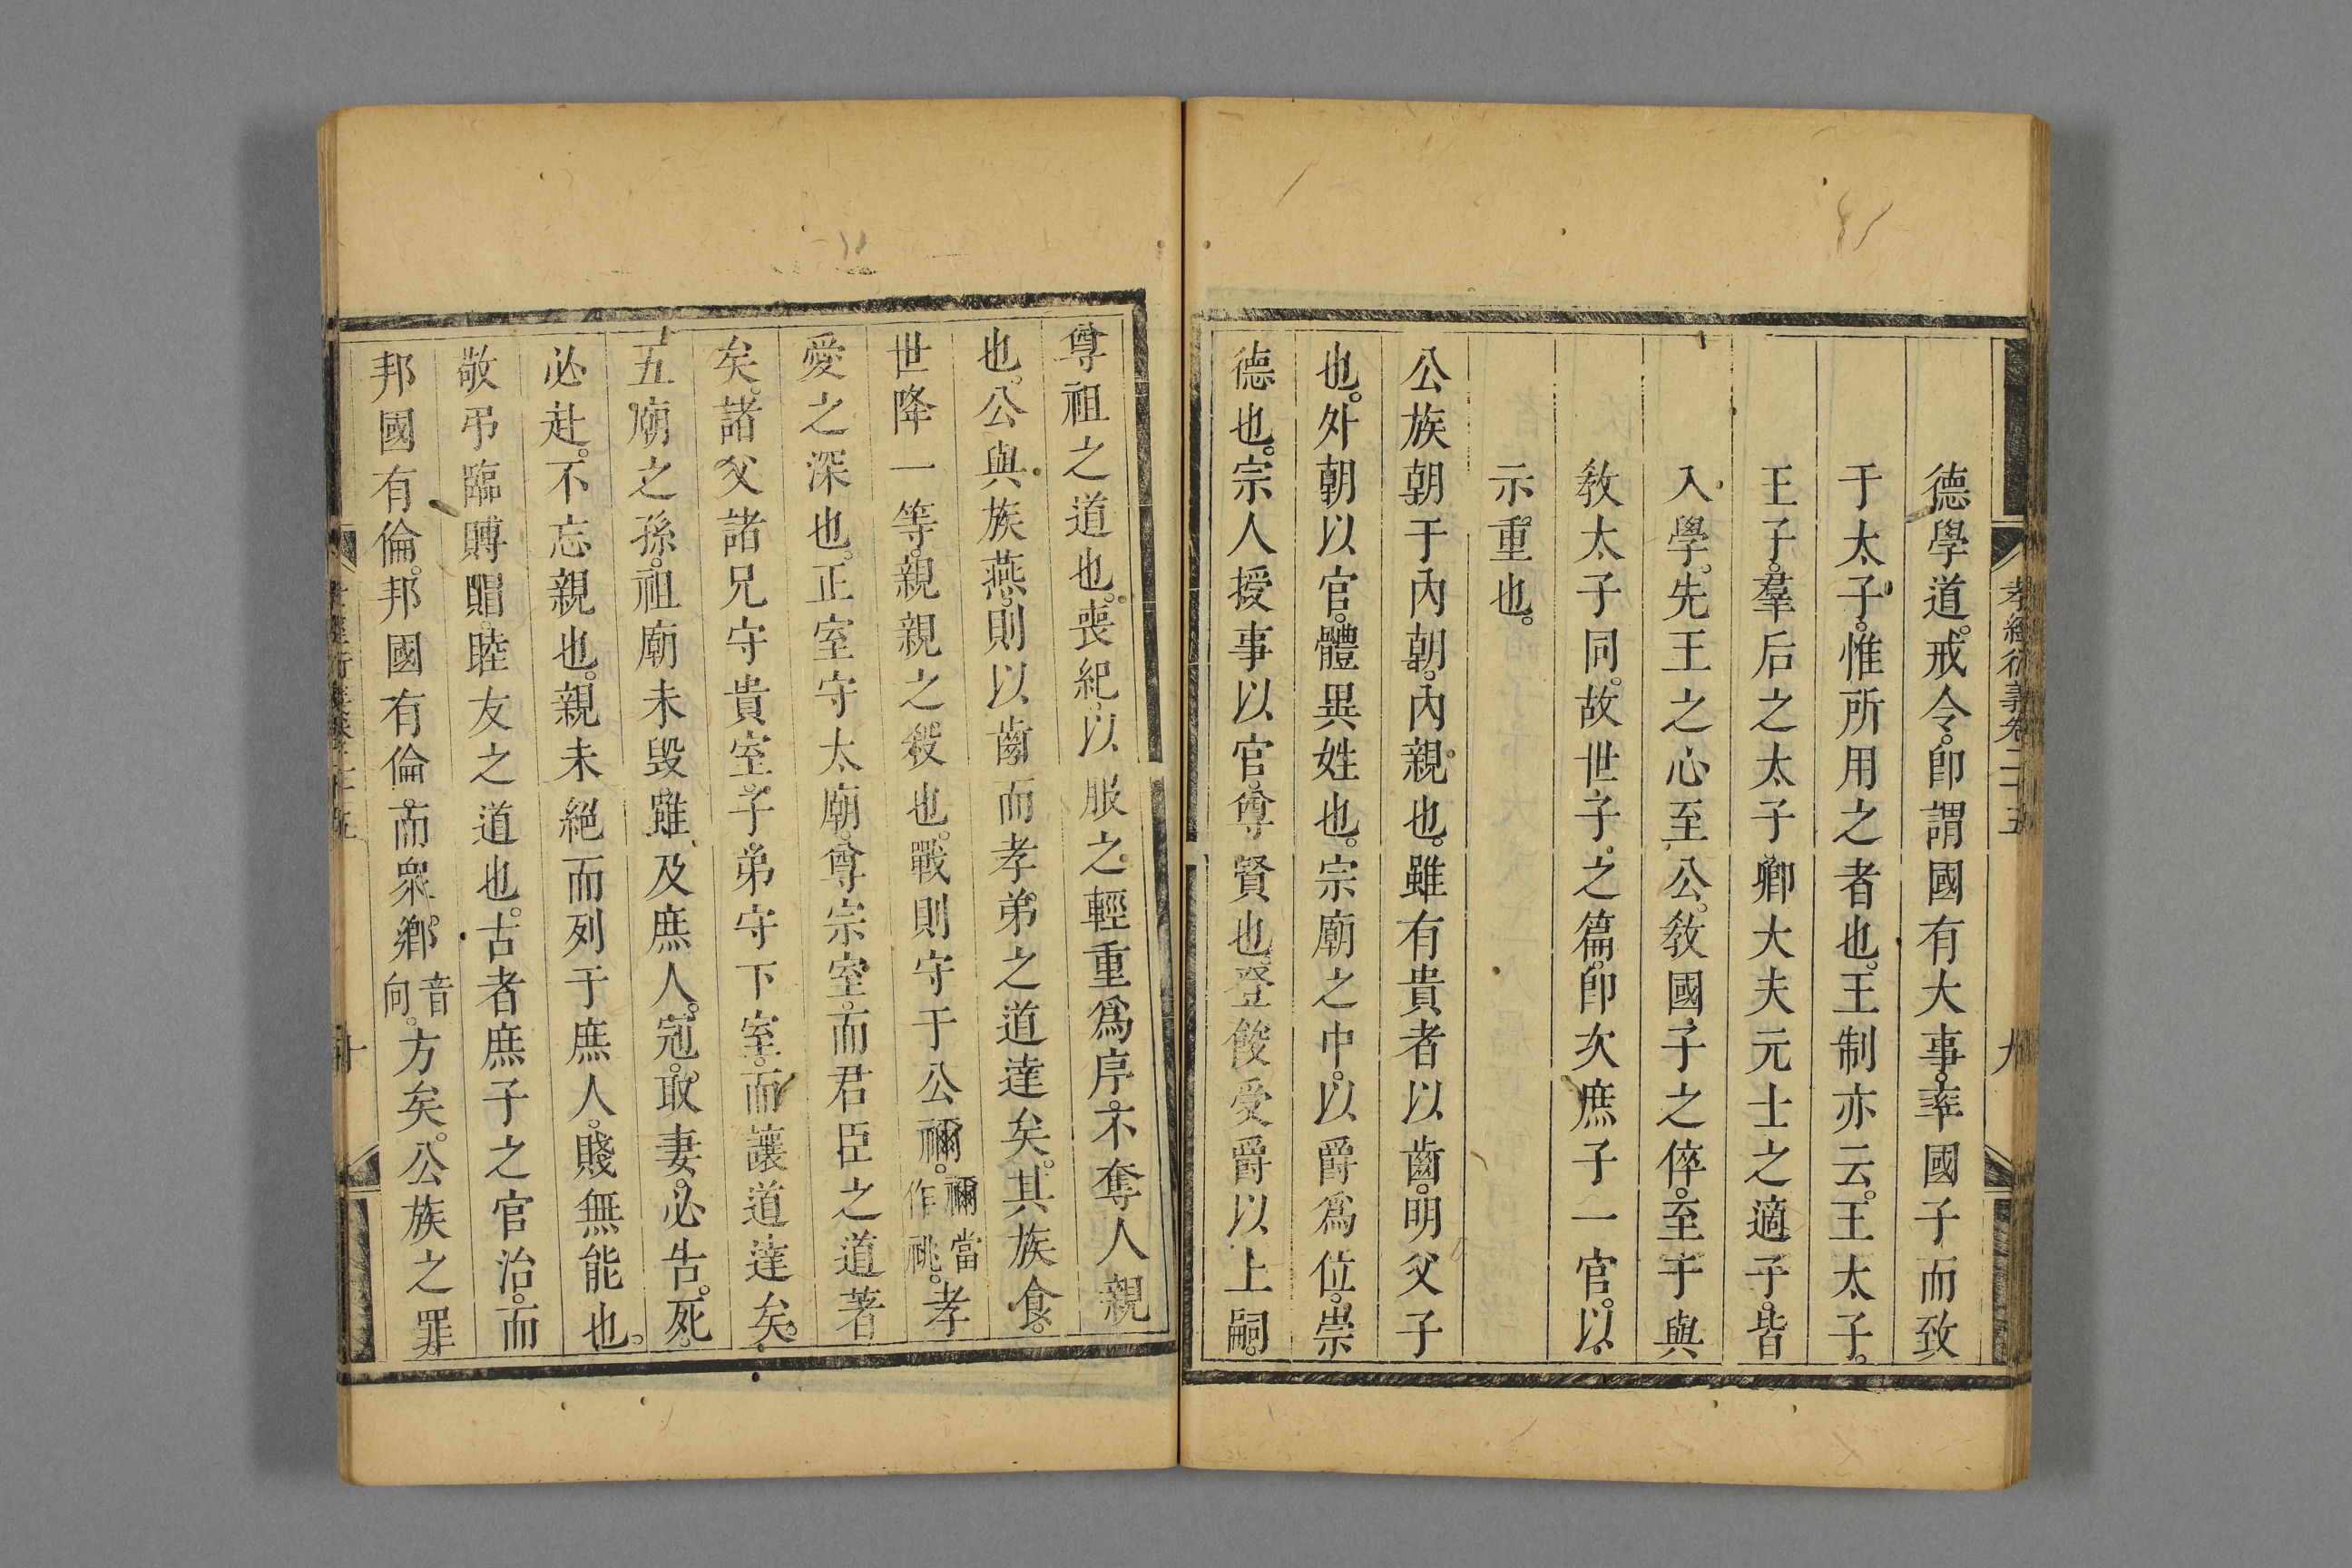 孝經衍義卷二十五　九
德學道。戒令。卽謂國有大事。率國子而致
于太子。惟所用之者也。王制亦云。王太子。
王子。羣后之太子卿大夫元士之適子。皆
入學。先王之心至公。敎國子之倅。至于與
敎太子同。故世子之篇。卽次庶子一官。以
示重也。
公族朝于內朝。內親也。雖有貴者以齒。明父子
也。外朝以官。體異姓也。宗廟之中。以爵爲位。崇
德也。宗人授事以官。尊賢也。登餕受爵以上嗣。
尊祖之道也。喪紀以服之輕重爲序。不奪人親
也。公與族燕。則以齒而孝弟之道達矣。其族食。
世降一等。親親之殺也。戰則守于公禰。禰當作祧。孝
愛之深也。正室守太廟。尊宗室。而君臣之道著
矣。諸父諸兄守貴室。子弟守下室。而讓道達矣。
五廟之孫。祖廟未毀。雖及庶人。冠。取妻。必告。死。
必赴。不忘親也。親未絕而列于庶人。賤無能也。
敬弔臨賻賵。睦友之道也。古者庶子之官治。而
邦國有倫。邦國有倫。而衆鄉音向。方矣。公族之罪
十